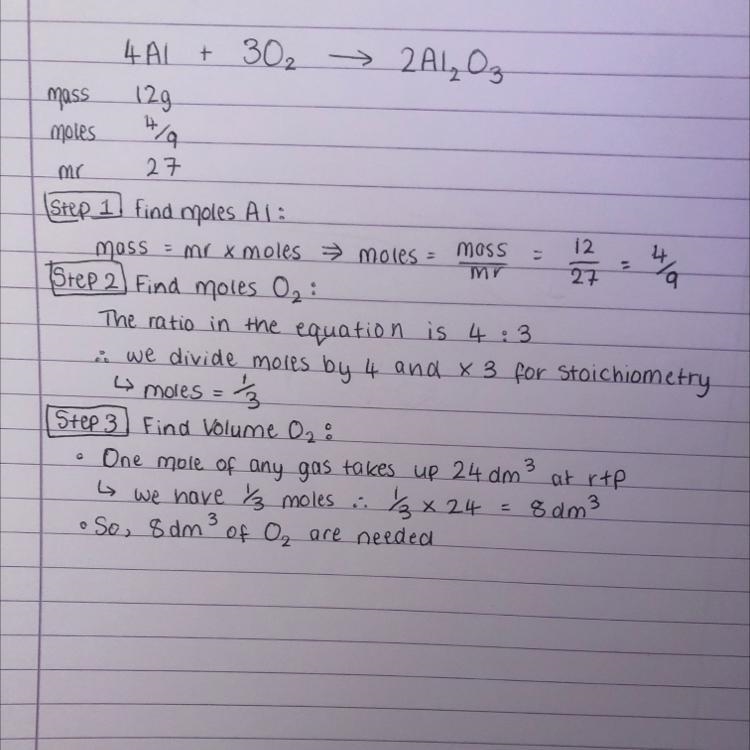 4Al + 3O₂ → 2Al₂O₃
mass 12g
moles 4/9
mr 27
Step 1 Find moles Al:
mass = mr x moles ⇒ moles = mass/mr = 12/27 = 4/9
Step 2 Find moles O₂:
The ratio in the equation is 4 : 3
∴ we divide moles by 4 and x 3 for stoichiometry
↳ moles = 1/3
Step 3 Find Volume O₂:
• One mole of any gas takes up 24 dm³ at rtp
↳ we have 1/3 moles ∴ 1/3 x 24 = 8dm³
• So, 8dm³ of O₂ are needed